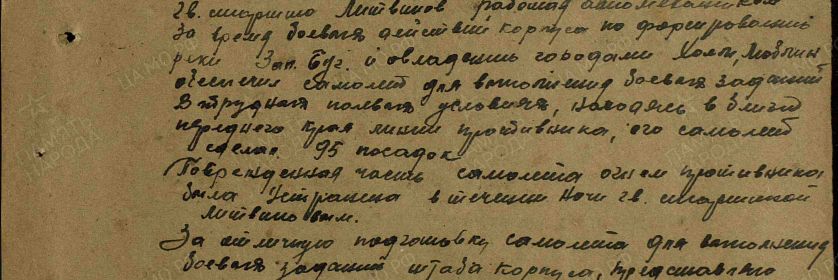 гв. старшина Литвинов работая авиомехаником
За время боевых действий корпуса по форсированию
реки Зап. Буг. и овладению городами Холм, Люблин
обеспечил самолет для выполнения боевых заданий
В трудных полевых условиях, находясь в близи
переднего края линии противника, его самолет
сделал 95 посадок
Поврежденная часть самолета огнем противника
была устранена в течении ночи гв. старшиной
Литвиновым.
За отличную подготовку самолета для выполнения
боевых заданий штаба корпуса, представляю